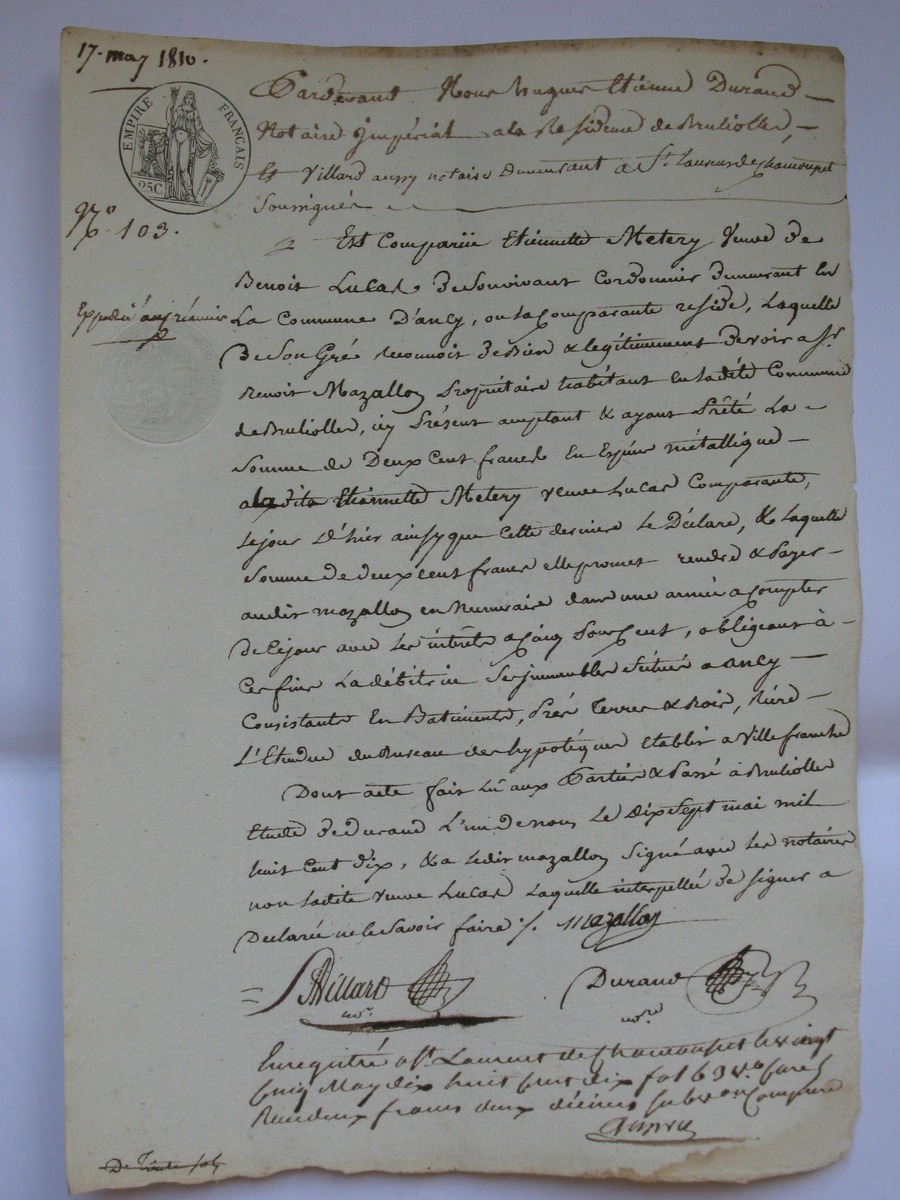 17. may 1810.
EMPIRE FRANÇAIS
25C
N.° 103.
Expédié au créancier
Pardevant Nous hugues Etienne Durand
Notaire impérial a la Residence de Brullioles,
Et Villard aussy notaire Demeurant a St. Laurens de Chamousset
Soussignés
Est Comparüe Etiennette Metery Veuve de
Benoit Lucas de Son vivant Cordonnier demeurant En
La Commune D'ancy, ou la Comparante reside, Laquelle
De Son Gré reconnoit de Bien & legitimement devoir a Sr.
Benoit Mazallon Propriétaire habitant En ladite Commune
de Brullioles, icy Présent acceptant & ayant Prêté La
Somme de Deux Cent francs En Espèces métallique
a ladite Etiennette Metery veuve Lucas Comparante,
Le jour d'hier ainsy que Cette derniere Le Déclare, & Laquelle
Somme de deux cent francs elle promet rendre & Payer
audit mazallon en Numeraire dans une année a Compter
de Cejour avec Les intérêts a Cinq Pour Cent, obligeant à
Ces fins La débitrice Ses immeubles Situés a ancy
Consistants En Batiments, Prés Terres & Bois, rière
L'Etendue du Bureau des hypotéques Etabli a Ville franche
Dont acte fait Lu aux Parties & Passé à Brullioles
Etude de durand L'un de nous Le dix Sept mai mil
huit Cent dix, & a Ledit mazallon Signé avec Les notaires
non Ladite Veuve Lucas Laquelle interpellée de Signer a
Declarée ne le Savoir faire /. Mazallon
Villard
no.re
Durand
no.re
Enregistré a St. Laurent de Chamousset le vingt
May dix huit Cent dix fol 63 v.o
Reçu deux francs deux décimes Subvon Comprise